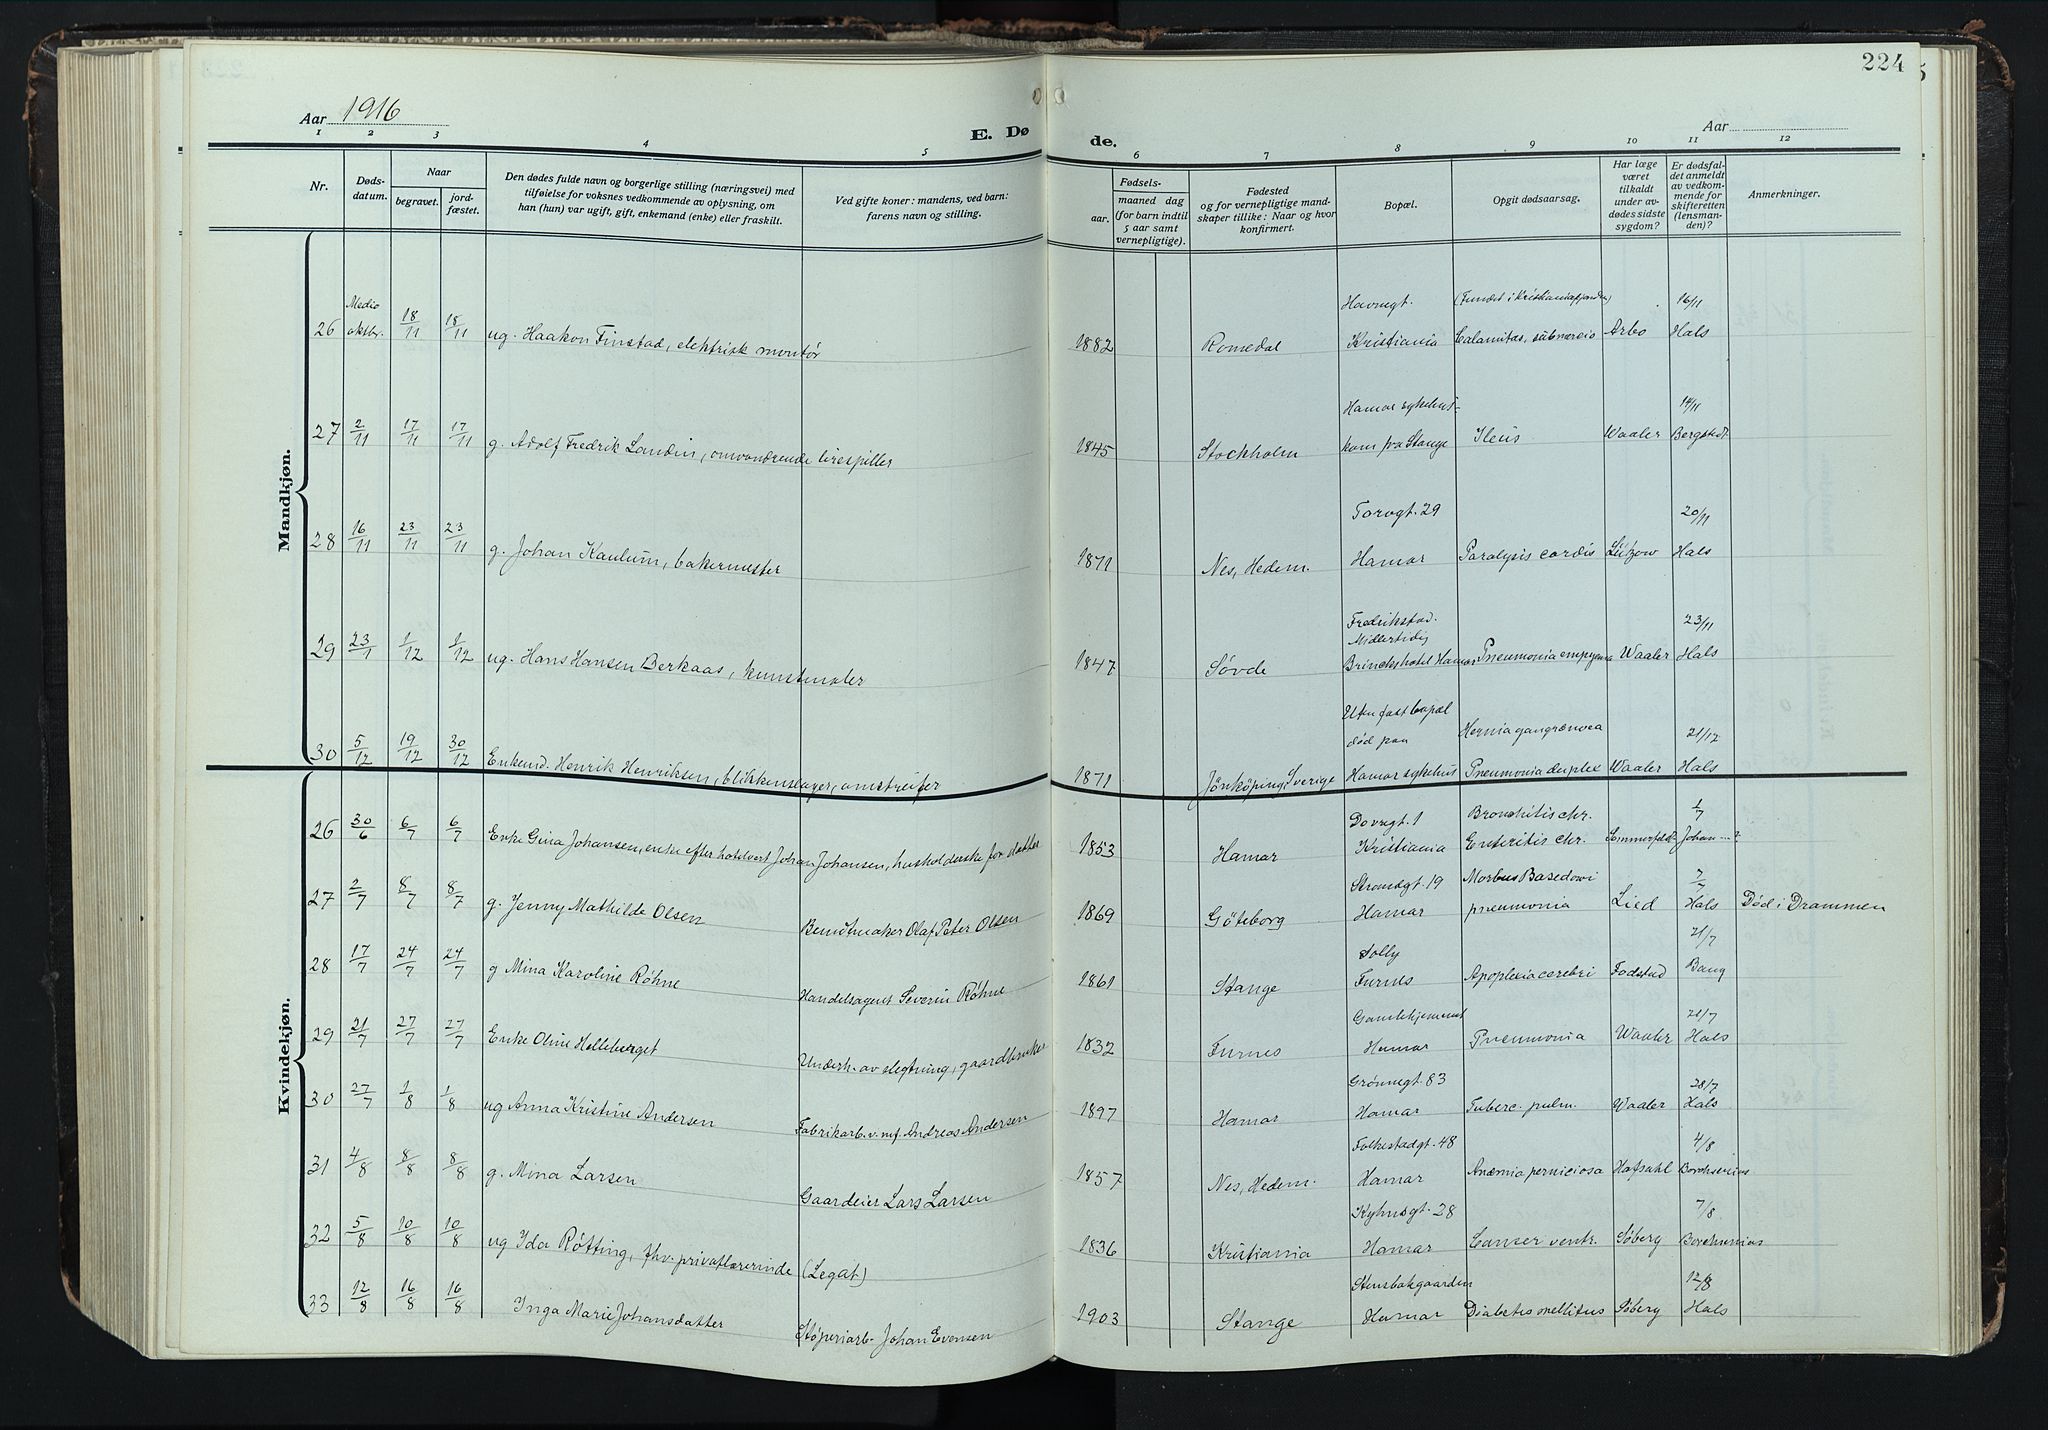 224
Aar 1916
E. Dø
de.
Aar
1 2 3 4 5 6 7 8 9 10 11 12
Nr.
Døds-
datum.
Naar
begravet.
jord-
fæstet.
Den dødes fulde navn og borgerlige stilling (næringsvei) med
tilføielse for voksnes vedkommende av oplysning, om
han (hun) var ugift, gift, enkemand (enke) eller fraskilt.
Ved gifte koner: mandens, ved barn:
farens navn og stilling.
Fødsels-
aar.
maaned dag
(for barn indtil
5 aar samt
vernepligtige).
Fødested
og for vernepligtige mand-
skaper tillike: Naar og hvor
konfirmert.
Bopæl.
Opgit dødsaarsag.
Har læge
været
tilkaldt
under av-
dødes sidste
sygdom?
Er dødsfal-
det anmeldt
av vedkom-
mende for
skifteretten
(lensman-
den)?
Anmerkninger.
Mandkjøn.
Medio Havnegt. (Fundet i Kristianiafjorden) 16/11
26 oktbr. 18/11 18/11 ug. Haakon Finstad, elektrisk montør 1882 Romedal Kristiania Calamitas, submercio Arbo Hals
Hamar sykehus 14/11
27 2/11 17/11 17/11 g. Adolf Fredrik Landin, omvandrende lirespiller 1845 Stockholm kom fra Stange Ileus Waaler Bergstedt.
Torvgt. 29 20/11
28 16/11 23/11 23/11 g. Johan Kaulum, bakermester 1871 Nes, Hedem. Hamar Paralysis cordis Lützow Hals
Fredrikstad. 23/11
Midlertidig
29 23/1 1/12 1/12 ug. Hans Hansen Berkaas, kunstmaler 1847 Søvde Brinckshotel Hamar Pneumonia empyema Waaler Hals
Uten fast bopæl
død paa Hernia gangrænosa 21/12
30 5/12 19/12 30/12 Enkemd. Henrik Henriksen, blikkenslager, omstreifer 1871 Jönköping, Sverige Hamar sykehus Pneumonia duplex Waaler Hals
Kvindekjøn.
Dovregt. 1 Bronchitis chr. 1/7
26 30/6 6/7 6/7 Enke Gina Johansen, enke efter hotelvert Johan Johansen, husholderske for datter 1853 Hamar Kristiania Enteritis chr. Sommerfeldt Johan---?
Strandgt. 19 Morbus Basedowi 7/7
27 2/7 8/7 8/7 g. Jenny Mathilde Olsen Bundtmaker Olaf Peter Olsen 1869 Göteborg Hamar pneumonia Lied Hals Død i Drammen
Solly 21/7
28 17/7 24/7 24/7 g Mina Karoline Røhne Handelsagent Severin Røhne 1861 Stange Furnes Apoplexia cerebri Fodstad Bang
Gamlehjemmet 21/7
29 21/7 27/7 27/7 Enke Oline Helleberget Underh. av slegtning, gaardbruker 1832 Furnes Hamar Pneumonia Waaler Hals
Grønnegt. 83 28/7
30 27/7 1/8 1/8 ug Anna Kristine Andersen Fabrikarb. v. mf. Andreas Andersen 1897 Hamar Hamar Tuberc. pulm. Waaler Hals
Folkestadgt. 48 4/8
31 4/8 8/8 8/8 g. Mina Larsen Gaardeier Lars Larsen 1857 Nes, Hedem. Hamar Anæmia perniciosa Hafsahl Borchsenius
Kyhnsgt. 28 7/8
32 5/8 10/8 10/8 ug Ida Røtting, fhv. privatlærerinde (Legat) 1836 Kristiania Hamar Canser ventr. Søberg Borchsenius
Stensbakgaarden 12/8
33 12/8 16/8 16/8 Inga Marie Johansdatter Støperiarb. Johan Evensen 1903 Stange Hamar Diabetes mellitus Søberg Hals